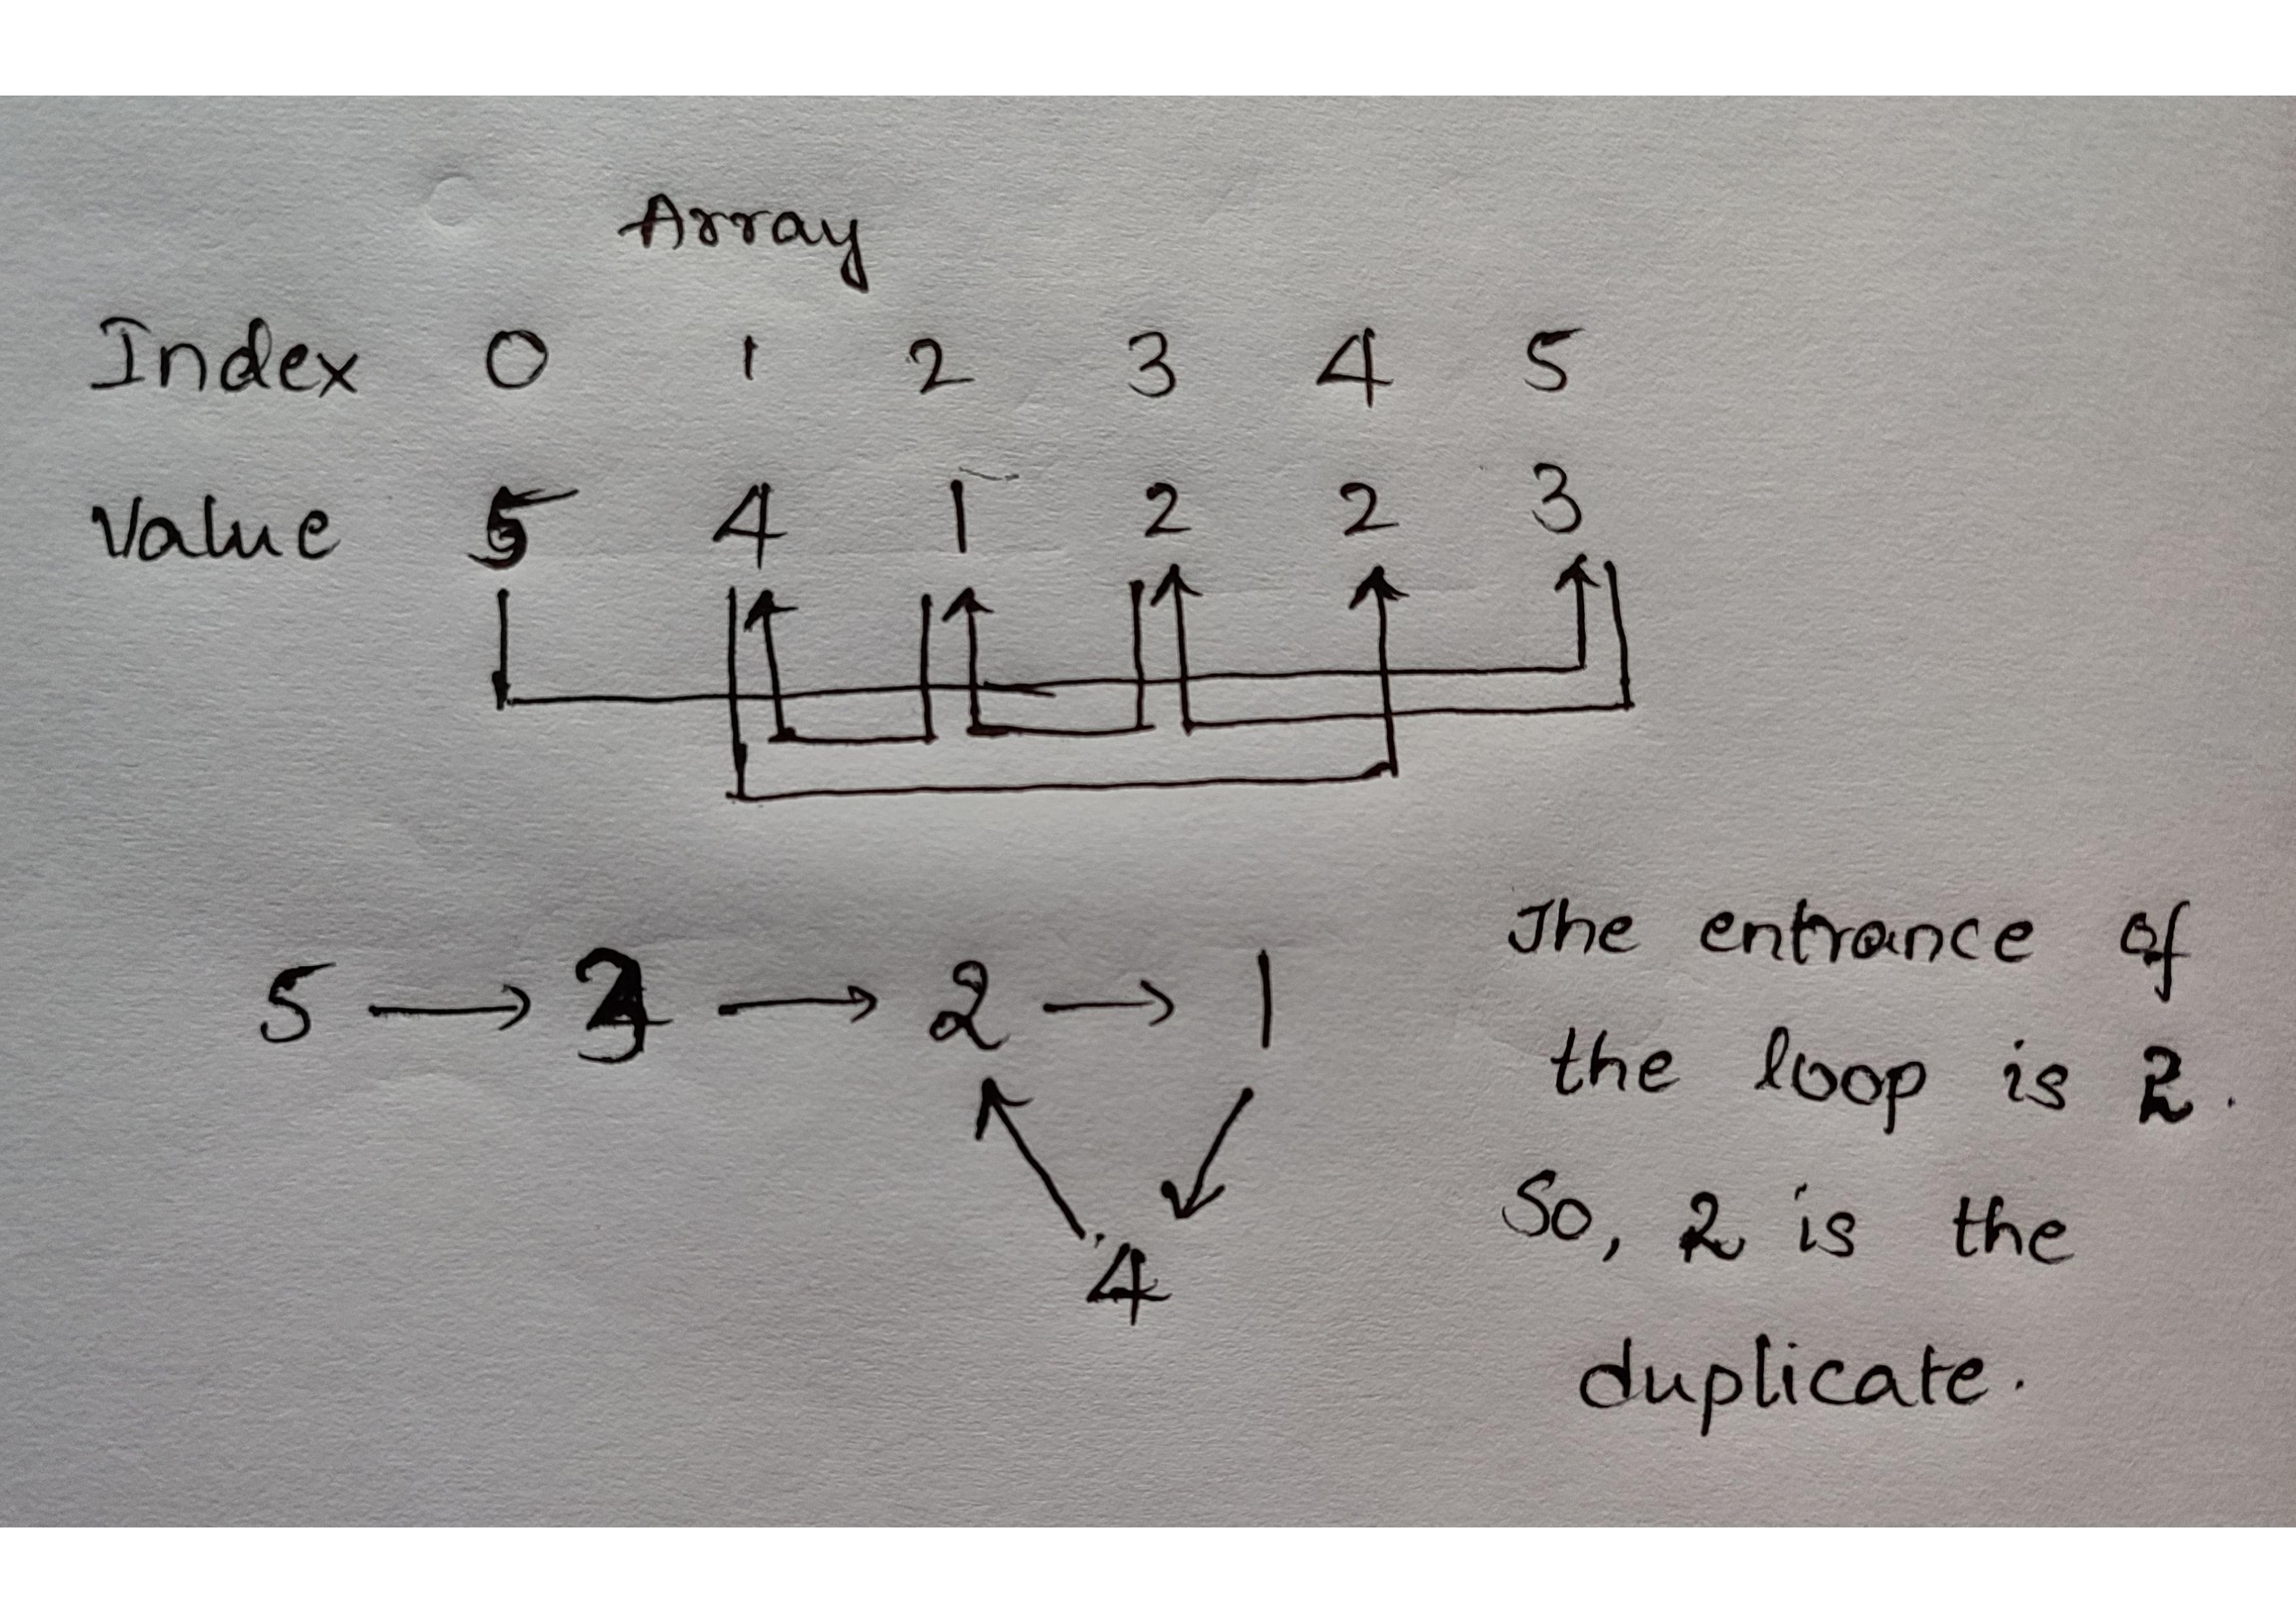 Array
Index 0 1 2 3 4 5
Value 5 4 1 2 2 3
5 → 3 → 2 → 1
4
The entrance of
the loop is 2.
So, 2 is the
duplicate.